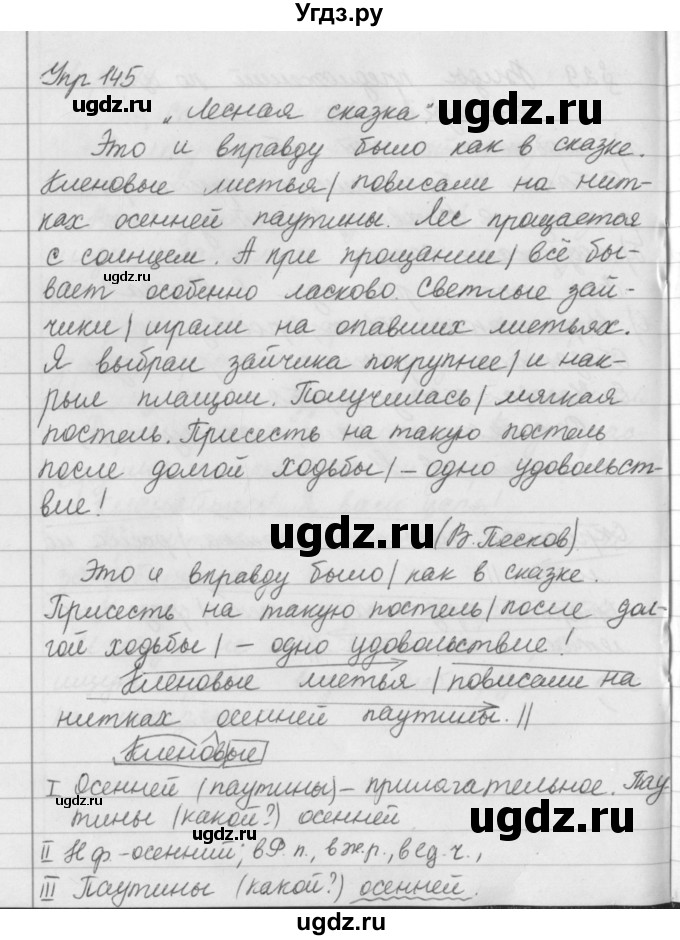 Угдз.ру
Упр 145
ugdz.ru
„Лесная сказка".
ugdz.ru
Это и вправду было как в сказке.
Кленовые листья | повисали на нит-
ках осенней паутины. Лес прощается
с солнцем. А при прощании | всё бы-
ugdz.ru
вает особенно ласково. Светлые зай-
чики | играли на опавших листьях.
ugdz.ru
Я выбрал зайчика покрупнее | и нак-
рыл плащом. Получилась | мягкая
постель. Присесть на такую постель
после долгой ходьбы | – одно удовольст-
вие!
ugdz.ru
ugdz.ru
(В. Песков)
Это и вправду было | как в сказке.
Присесть на такую постель | после дол-
гой ходьбы | – одно удовольствие!
ugdz.ru
Кленовые листья | повисали на
нитках осенней паутины. ||
Кленовые
I Осенней (паутины) – прилагательное. Пау
ugdz.ru
тины (какой?) осенней
ugdz.ru
II Н ф – осенний; в Р. п., в ж. р., в ед. ч.,
III Паутины (какой?) осенней.
ugdz.ru